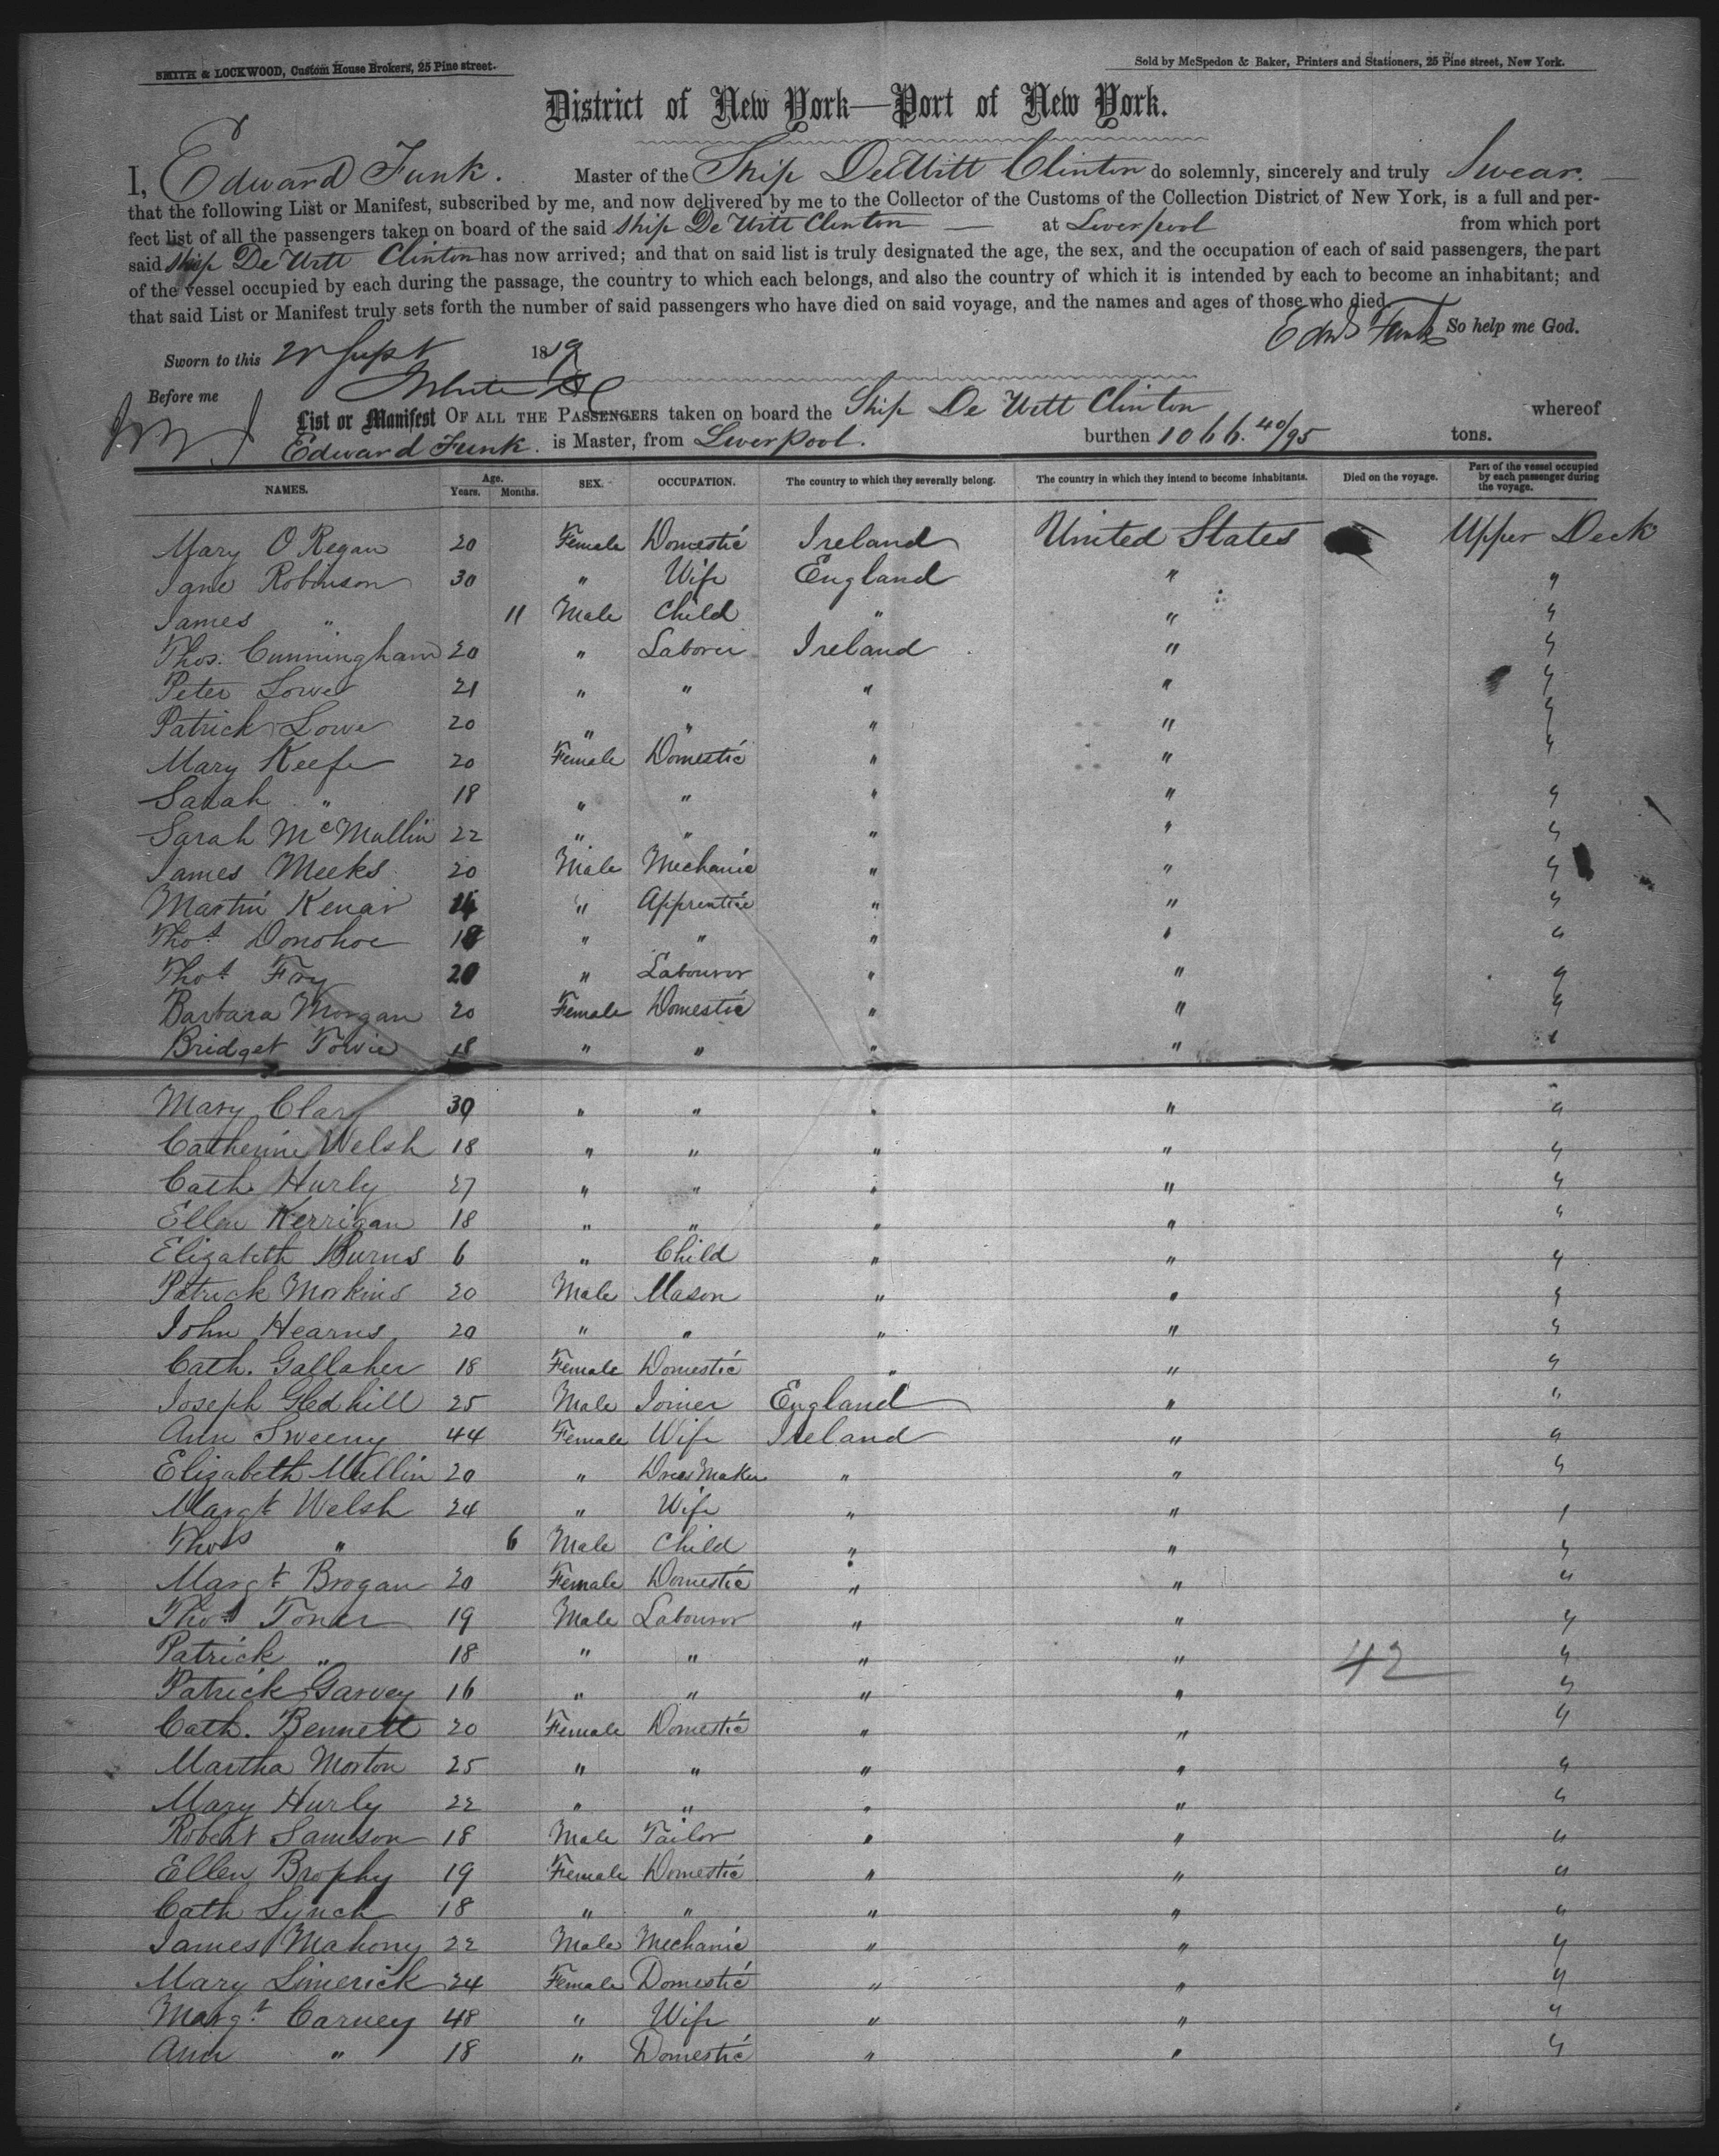 SMITH & LOCKWOOD, Custom House Brokers, 25 Pine street.
Sold by McSpedon & Baker, Printers and Stationers, 25 Pine street, New York.
District of New York—Port of New York.
I, Edward Funk. Master of the Ship DeWitt Clinton do solemnly, sincerely and truly Swear.
that the following List or Manifest, subscribed by me, and now delivered by me to the Collector of the Customs of the Collection District of New York, is a full and per-
fect list of all the passengers taken on board of the said Ship De Witt Clinton — at Liverpool from which port
said Ship De Witt Clinton has now arrived; and that on said list is truly designated the age, the sex, and the occupation of each of said passengers, the part
of the vessel occupied by each during the passage, the country to which each belongs, and also the country of which it is intended by each to become an inhabitant; and
that said List or Manifest truly sets forth the number of said passengers who have died on said voyage, and the names and ages of those who died.
Edwd Funk So help me God.
Sworn to this Sept 18
Before me
List or Manifest OF ALL THE PASSENGERS taken on board the Ship De Witt Clinton whereof
Edward Funk. is Master, from Liverpool. burthen 1066. 40/95 tons.
NAMES. Age. Years. Months. SEX. OCCUPATION. The country to which they severally belong. The country in which they intend to become inhabitants. Died on the voyage. Part of the vessel occupied by each passenger during the voyage.
Mary O Regan 20 Female Domestic Ireland United States Upper Deck
Jane Robinson 30 " Wife England " "
James " 11 Male Child " " "
Thos. Cunningham 20 " Laborer Ireland " "
Peter Lowe 21 " " " " "
Patrick Lowe 20 " " " " "
Mary Keefe 20 Female Domestic " " "
Sarah " 18 " " " " "
Sarah McMullin 22 " " " " "
James Meeks 20 Male Mechanic " " "
Martin Kenar " Apprentice " " "
Thos Donohoe 18 " " " " "
Thos Foy 20 " Labouror " " "
Barbara Morgan 20 Female Domestic " " "
Bridget Towie 18 " " " " "
Mary Clary 30 " " " " "
Catherine Welsh 18 " " " " "
Cath. Hurly 27 " " " " "
Ellen Kerrigan 18 " " " " "
Elizabeth Burns 6 " Child " " "
Patrick Morkins 20 Male Mason " " "
John Hearns 20 " " " " "
Cath. Gallaher 18 Female Domestic " " "
Joseph Gledhill 25 Male Joiner England " "
Ann Sweeny 44 Female Wife Ireland " "
Elizabeth Mullin 20 " Dress Maker " " "
Margt Welsh 24 " Wife " " "
Thos " 6 Male Child " " "
Margt Brogan 20 Female Domestic " " "
Thos Toner 19 Male Labouror " " "
Patrick " 18 " " " " 42 "
Patrick Garvey 16 " " " " "
Cath. Bennett 20 Female Domestic " " "
Martha Morton 25 " " " " "
Mary Hurly 22 " " " " "
Robert Samson 18 Male Tailor " " "
Ellen Brophy 19 Female Domestic " " "
Cath Lynch 18 " " " " "
James Mahony 22 Male Mechanic " " "
Mary Limerick 24 Female Domestic " " "
Margt Carney 48 " Wife " " "
Ann " 18 " Domestic " " "